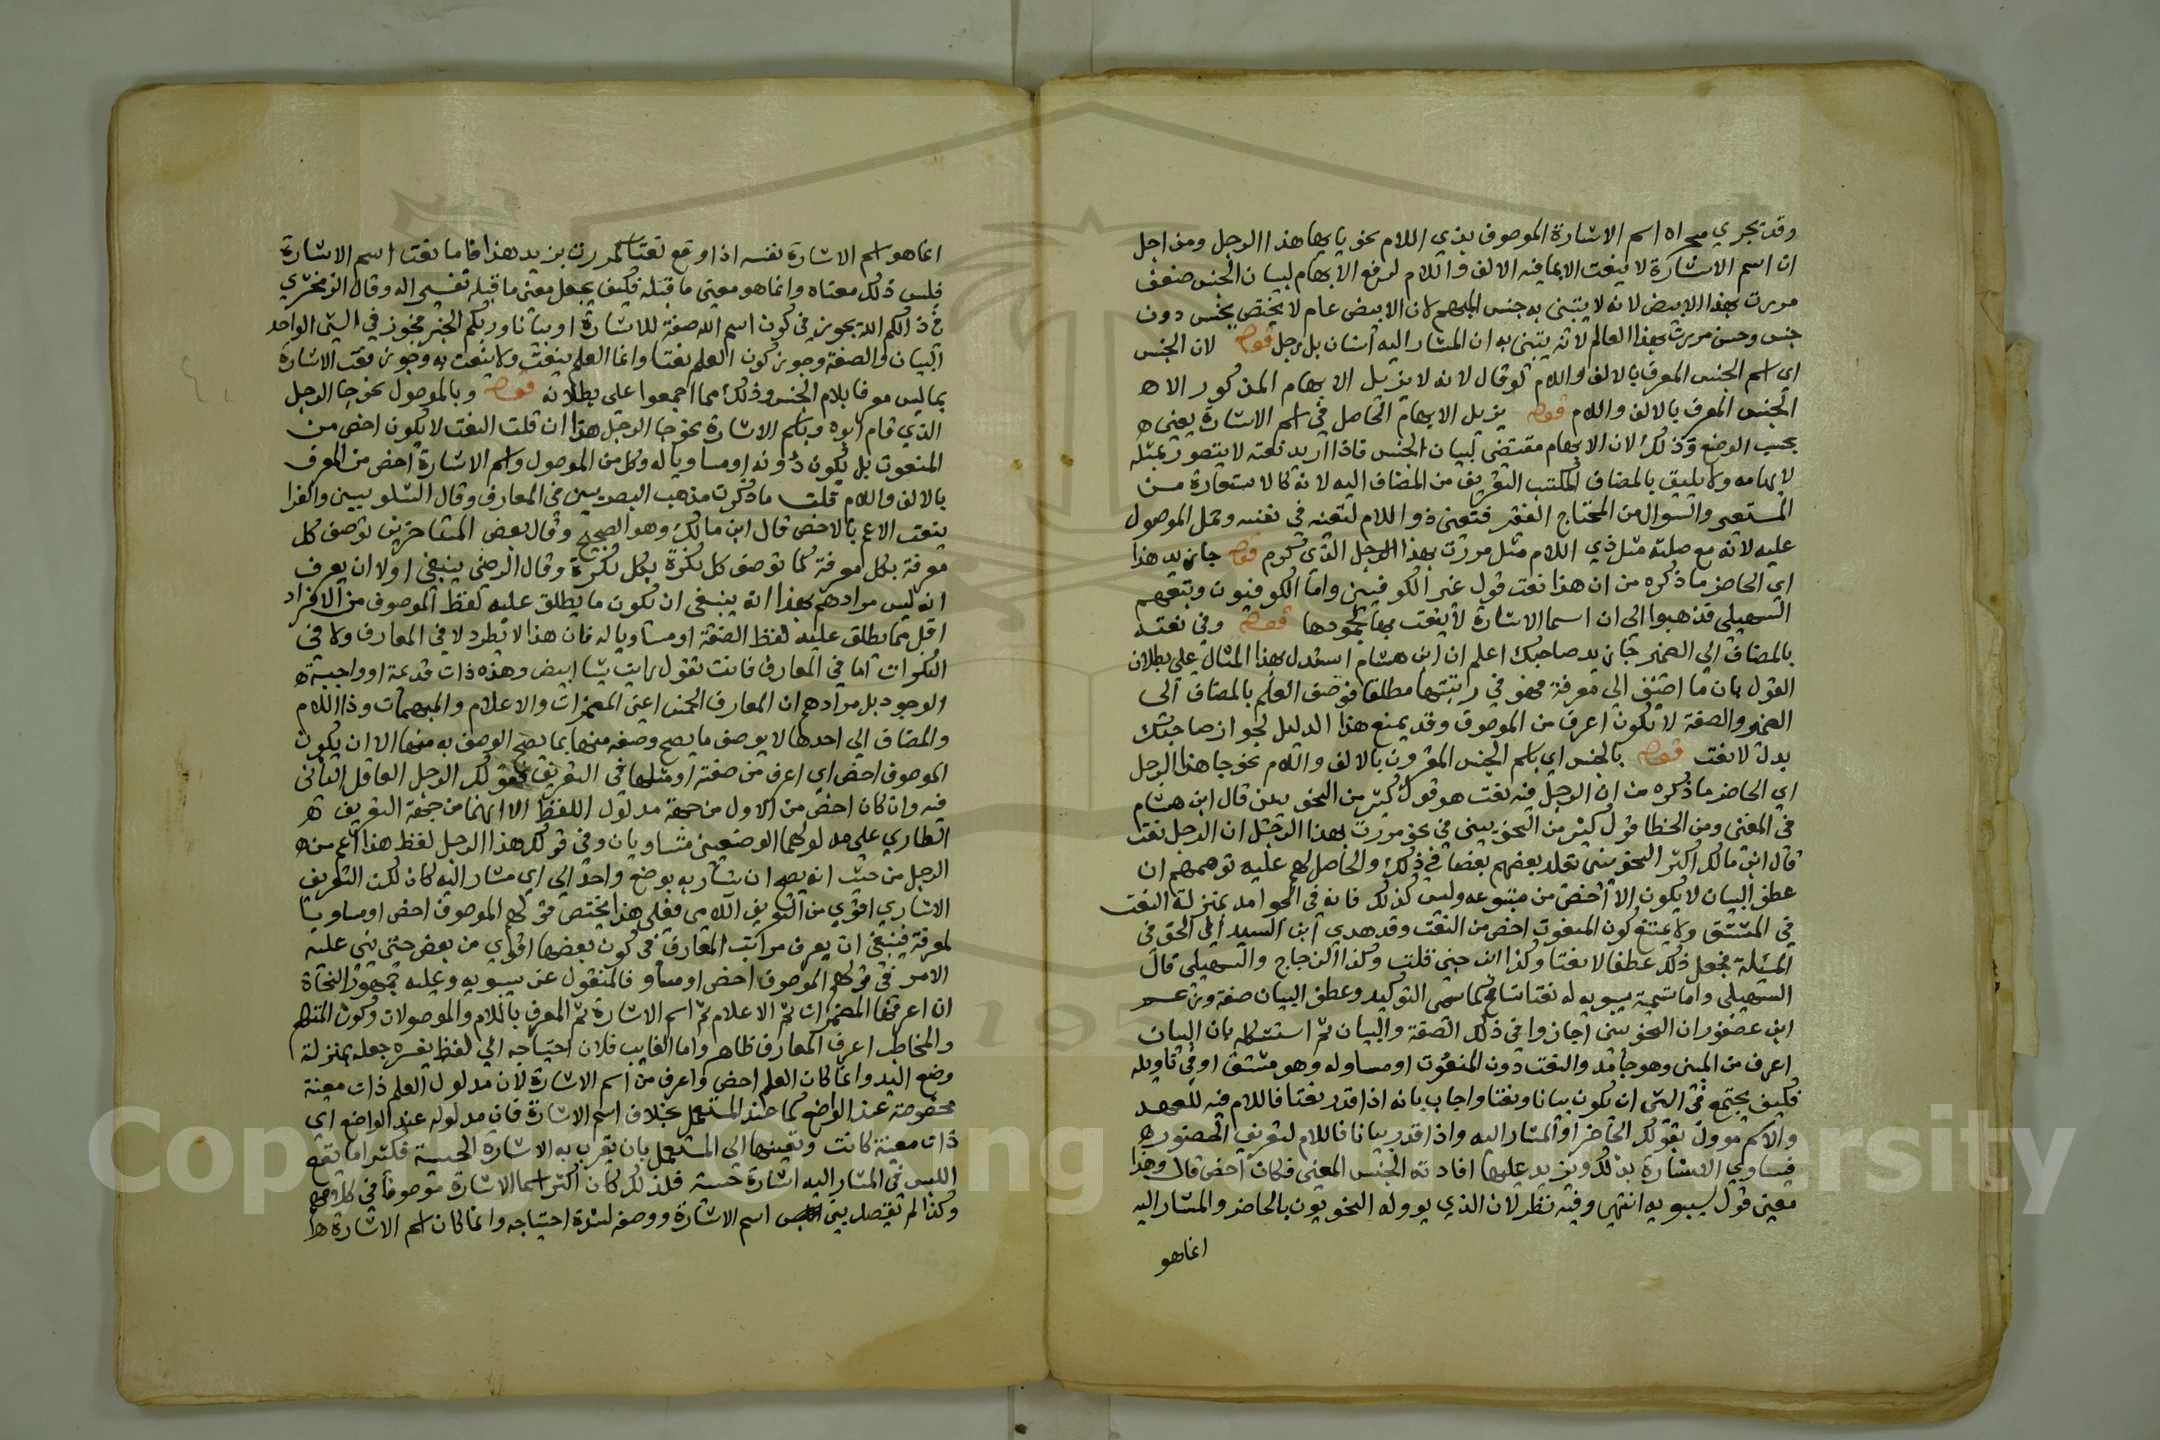 وقد يجري مجراه اسم الاشارة الموصوف بذي اللام نحو يا ايها هذا الرجل ومن اجل
ان اسم الاشارة لا ينعت الا بما فيه الالف واللام لرفع الابهام لبيان الجنس ضعف
مررت بهذا الابيض لانه لا يتبنى به جنس المبهم لان الابيض عام لا يختص بجنس دون
جنس وحسن مررت بهذا العالم لانه يتبنى به ان المشار اليه انسان بل رجل قوله لان الجنس
اي اسم الجنس المعرف بالالف واللام لو قال لانه لا يزيل الابهام المذكور الا ه
الجنس المعرف بالالف واللام قوله يزيل الابهام الحاصل في اسم الاشارة يعني ه
بحسب الوضع وذلك لان الابهام مقتضى لبيان الجنس فاذا اريد نعته لا يتصور بمثله
لابهامه ولا يليق بالمضاف المكتسب التعريف من المضاف اليه لانه كالاستعارة من
المستعير والسوال من المحتاج الفقير فتعين ذو اللام لتعينه في نفسه وحمل الموصول
عليه لانه مع صلته مثل ذي اللام مثل مررت بهذا الرجل الذي كرم قوله جا زيد هذا
اي الحاضر ما ذكره من ان هذا نعت قول غير الكوفيين واما الكوفيون وتبعهم
السهيلي فذهبوا الى ان اسما الاشارة لا ينعت بها لجمودها قوله وفي نعته
بالمضاف الى الضمير جا زيد صاحبك اعلم ان ابن هشام استدل بهذا المثال على بطلان
القول بان ما اضيف الى معرفة فهو في رتبتها مطلقا فوصف العلم بالمضاف الى
الضمير والصفة لا تكون اعرف من الموصوف وقد يمنع هذا الدليل لجواز صاحبك
بدلا لا نعت قوله بالجنس اي باسم الجنس المقرون بالالف واللام نحو جا هذا الرجل
اي الحاضر ما ذكره من ان الرجل فيه نعت هو قول كثير من النحويين قال ابن هشام
في المغني ومن الخطا قول كثير من النحويين في نحو مررت بهذا الرجل ان الرجل نعت
قال ابن مالك اكثر النحويين يقلد بعضهم بعضا في ذلك والحاصل لهم عليه توهمهم ان
عطف البيان لا يكون الا اخص من متبوعه وليس كذلك فانه في الجوامد بمنزلة النعت
في المشتق ولا يمتنع كون المنعوت اخص من النعت وقد هدي ابن السيد الى الحق في
المسئلة فجعل ذلك عطفا لا نعتا وكذا ابن جني قلت وكذا الزجاج والسهيلي قال
السهيلي واما تسمية سيبويه له نعتا فتسامح كما سمى التوكيد وعطف البيان صفة وزعم
ابن عصفور ان النحويين اجازوا في ذلك الصفة والبيان ثم استشكله بان البيان
اعرف من المبين وهو جامد والنعت دون المنعوت او مساو له وهو مشتق او في تاويله
فكيف يجتمع في الشي ان يكون بيانا ونعتا واجاب بانه اذا قدر نعتا فاللام فيه للعهد
والاسم موول بقولك الحاضر او المشار اليه واذا قدر بيانا فاللام لتعريف الحضور ه
فيساوي الاشارة بذلك ويزيد عليها افادته الجنس المعين فكان اخص قال وهذا
معنى قول سيبويه انتهى وفيه نظر لان الذي يووله النحويون بالحاضر والمشار اليه
انما هو
انما هو اسم الاشارة نفسه اذا وقع نعتا كمررت بزيد هذا فاما نعت اسم الاشارة
فليس ذلك معناه وانما هو معنى ما قبله فكيف يجعل معنى ما قبله تفسير اله وقال الزمخشري
في ذلكم الله يجوز في كون اسم الله صفة للاشارة او بيانا وربكم الخبر فجوز في الشي الواحد
البيان والصفة وجوز كون العلم نعتا وانما العلم ينعت ولا ينعت به وجوز نعت الاشارة
بما ليس معرفا بلام الجنس وذلك مما اجمعوا على بطلانه قوله وبالموصول نحو جا الرجل
الذي قام ابوه وباسم الاشارة نحو جا الرجل هذا ان قلت النعت لا يكون اخص من
المنعوت بل يكون دونه او مساويا له وكل من الموصول واسم الاشارة اخص من المعرف
بالالف واللام قلت ما ذكرت مذهب البصريين في المعارف وقال الشلوبيين والفرا
ينعت الاعم بالاخص قال ابن مالك وهو الصحيح وقال بعض المتاخرين توصف كل
معرفة بكل معرفة كما توصف كل نكرة بكل نكرة وقال الرضي ينبغي اولا ان يعرف
انه ليس مرادهم بهذا انه ينبغي ان تكون ما يطلق عليه لفظ الموصوف من الافراد
اقل مما يطلق عليه لفظ الصفة او مساويا له فان هذا لا يطرد لا في المعارف ولا في
النكرات اما في المعارف فانت تقول رايت شيا ابيض وهذه ذات قديمة او واجبة ه
الوجود بل مرادهم ان المعارف الخمس اعني المضمرات والاعلام والمبهمات وذا اللام
والمضاف الى احدها لا يوصف ما يصح وصفه منها بما يصح الوصف به منها الا ان يكون
الموصوف اخص اي اعرف من صفته او مثلها في التعريف فقولك الرجل العاقل الثاني
فيه وان كان اخص من الاول من جهة مدلول اللفظ الا انهما من جهة التعريف ه
الطاري على مدلولهما الوضعيين متساويان وفي قولك هذا الرجل لفظ هذا اعم من ه
الرجل من حيث انه يصح ان يشار به بوضع واحد الى اي مشار اليه كان لكن التعريف
الاشاري اقوي من التعريف اللامي فعلى هذا يختص قولهم الموصوف اخص او مساو بيا
لمعرفة فينبغي ان يعرف مراتب المعارف في كون بعضها اقوي من بعض حتى يبنى عليه
الامر في قولهم الموصوف اخص او مساو فالمنقول عن سيبويه وعليه جمهور النحاة
ان اعرفها المضمرات ثم الاعلام ثم اسم الاشارة ثم المعرف باللام والموصولات وكون المتكلم
والمخاطب اعرف المعارف ظاهر واما الغايب فلان احتياجه الى لفظ يفسره جعله بمنزلة
وضع اليد وانما كان العلم اخص واعرف من اسم الاشارة لان مدلول العلم ذات معينة
مخصوصة عند الواضع كما عند المستعمل بخلاف اسم الاشارة فان مدلوله عند الواضع اي
ذات معينة كانت وتعيينها الى المستعمل بان يقرن به الاشارة الحسية فكثيرا ما تقع
اللبس في المشار اليه اشارة حسية فلذلك كان اكثر اسما الاشارة موصوفا في كلامهم
وكذا لم يفصل بين اسم الاشارة ووصفه لشدة احتياجه وانما كان اسم الاشارة ه